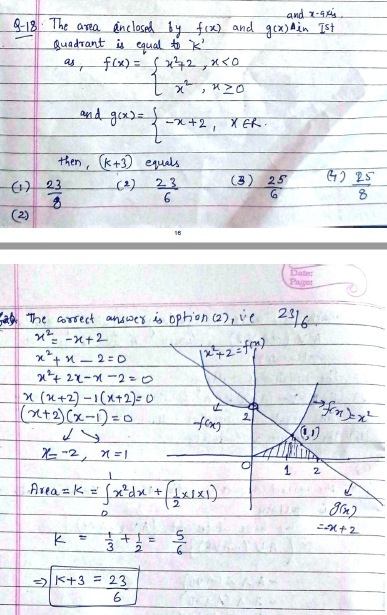 and x-axis.
Q-18. The area enclosed by f(x) and g(x) ∧ in Ist
Quadrant is equal to 'K'
as, f(x) = { x²+2 , x<0
x² , x≥0
and g(x) = { -x+2 , x∈R.
then, (k+3) equals
(1) 23/8 (2) 23/6 (3) 25/6 (4) 25/8
(2)
16
Date:
Page:
The correct answer is option (2), i.e 23/6
x² = -x+2
x²+x-2=0
x²+2x-x-2=0
x(x+2)-1(x+2)=0
(x+2)(x-1)=0
x=-2, x=1
Area = K = ∫₀¹ x²dx + (1/2 x1x1)
K = 1/3 + 1/2 = 5/6
⇒ K+3 = 23/6
x²+2=f(x)
f(x)
2
f(x)=x²
(1,1)
0 1 2
g(x)
=-x+2